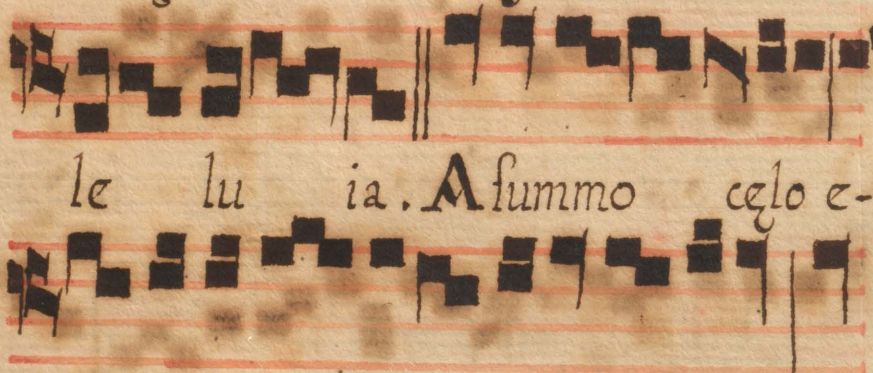 le lu ia. A summo cęlo e-